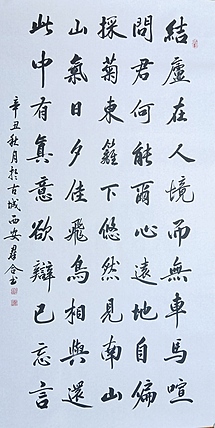 結廬在人境而無車馬喧
問君何能爾心遠地自偏
採菊東籬下悠然見南山
山氣日夕佳飛鳥相與還
此中有真意欲辯已忘言
辛丑秋月於古城西安